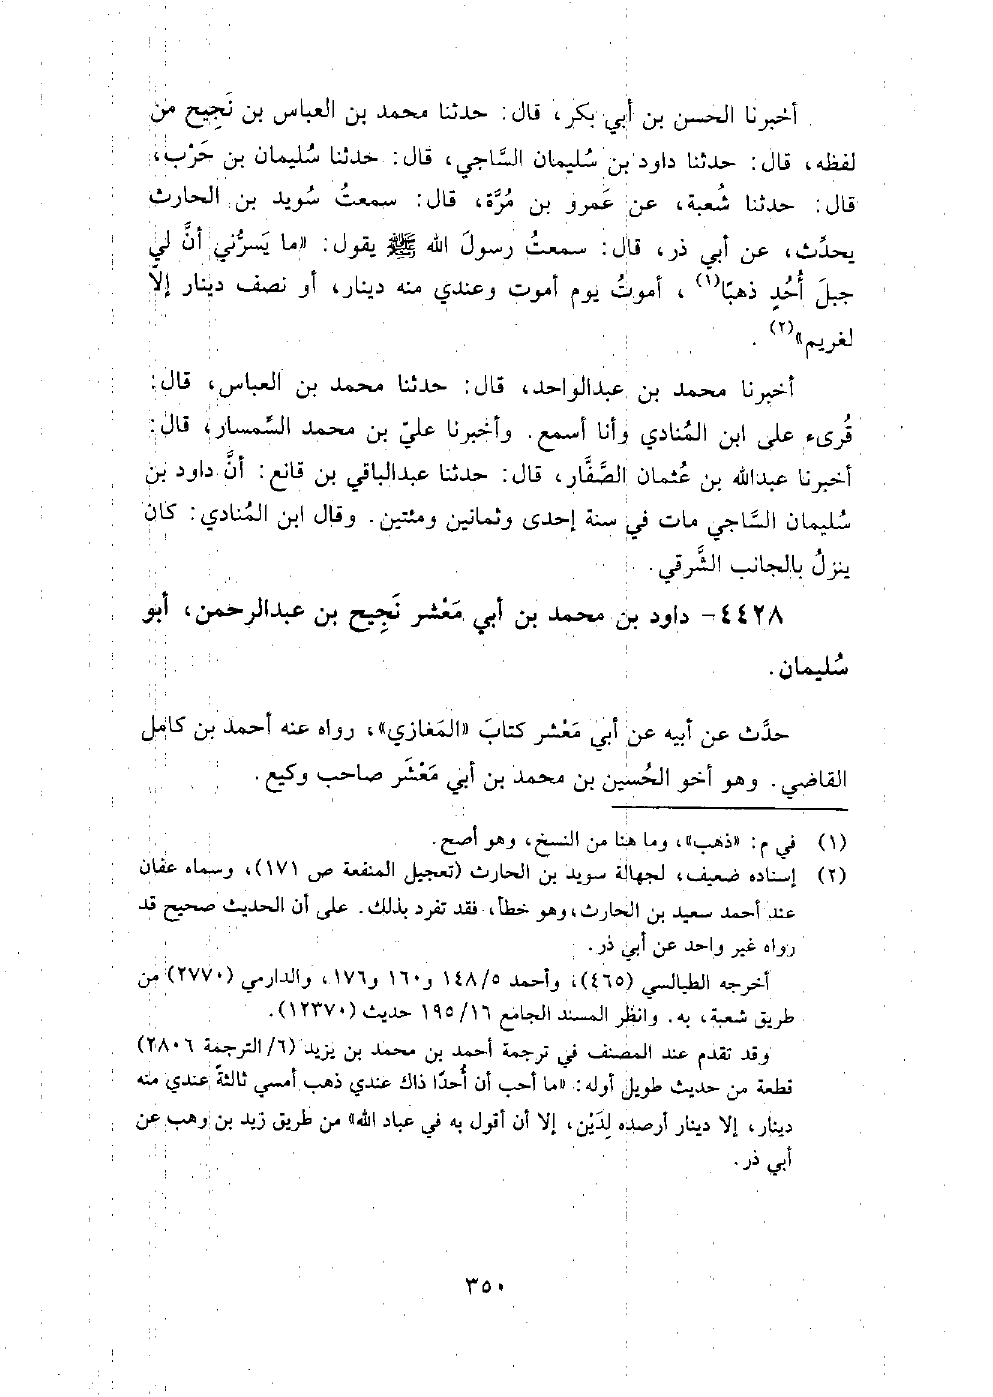 أخبرنا الحسن بن أبي بكر، قال: حدثنا محمد بن العباس بن نَجِيح من
لفظه، قال: حدثنا داود بن سُليمان السَّاجي، قال: حدثنا سُليمان بن حَرْب،
قال: حدثنا شُعبة، عن عَمرو بن مُرَّة، قال: سمعتُ سُويد بن الحارث
يحدِّث، عن أبي ذر، قال: سمعتُ رسولَ الله ﷺ يقول: «ما يَسرُّني أنَّ لي
جبلَ أُحُدٍ ذهبًا(١) ، أموتُ يوم أموت وعندي منه دينار، أو نصف دينار إلاَّ
لغريم»(٢) .
أخبرنا محمد بن عبدالواحد، قال: حدثنا محمد بن العباس، قال:
قُرىء على ابن المُنادي وأنا أسمع. وأخبرنا عليّ بن محمد السِّمسار، قال:
أخبرنا عبدالله بن عُثمان الصَّفَّار، قال: حدثنا عبدالباقي بن قانع: أنَّ داود بن
سُليمان السَّاجي مات في سنة إحدى وثمانين ومئتين. وقال ابن المُنادي: كان
ينزلُ بالجانب الشَّرقي.
٤٤٢٨- داود بن محمد بن أبي مَعْشر نَجِيح بن عبدالرحمن، أبو
سُليمان.
حدَّث عن أبيه عن أبي مَعْشر كتابَ «المَغازي»، رواه عنه أحمد بن كامل
القاضي. وهو أخو الحُسين بن محمد بن أبي مَعْشَر صاحب وكيع.
(١) في م: «ذهب»، وما هنا من النسخ، وهو أصح.
(٢) إسناده ضعيف، لجهالة سويد بن الحارث (تعجيل المنفعة ص ١٧١)، وسماه عفان
عند أحمد سعيد بن الحارث، وهو خطأ، فقد تفرد بذلك. على أن الحديث صحيح قد
رواه غير واحد عن أبي ذر.
أخرجه الطيالسي (٤٦٥)، وأحمد ١٤٨/٥ و١٦٠ و١٧٦، والدارمي (٢٧٧٠) من
طريق شعبة، به. وانظر المسند الجامع ١٩٥/١٦ حديث (١٢٣٧٠).
وقد تقدم عند المصنف في ترجمة أحمد بن محمد بن يزيد (٦/ الترجمة ٢٨٠٦)
قطعة من حديث طويل أوله: «ما أحب أن أُحدًا ذاك عندي ذهب أمسي ثالثةً عندي منه
دينار، إلا دينار أرصده لِدَيْن، إلا أن أقول به في عباد الله» من طريق زيد بن وهب عن
أبي ذر.
٣٥٠